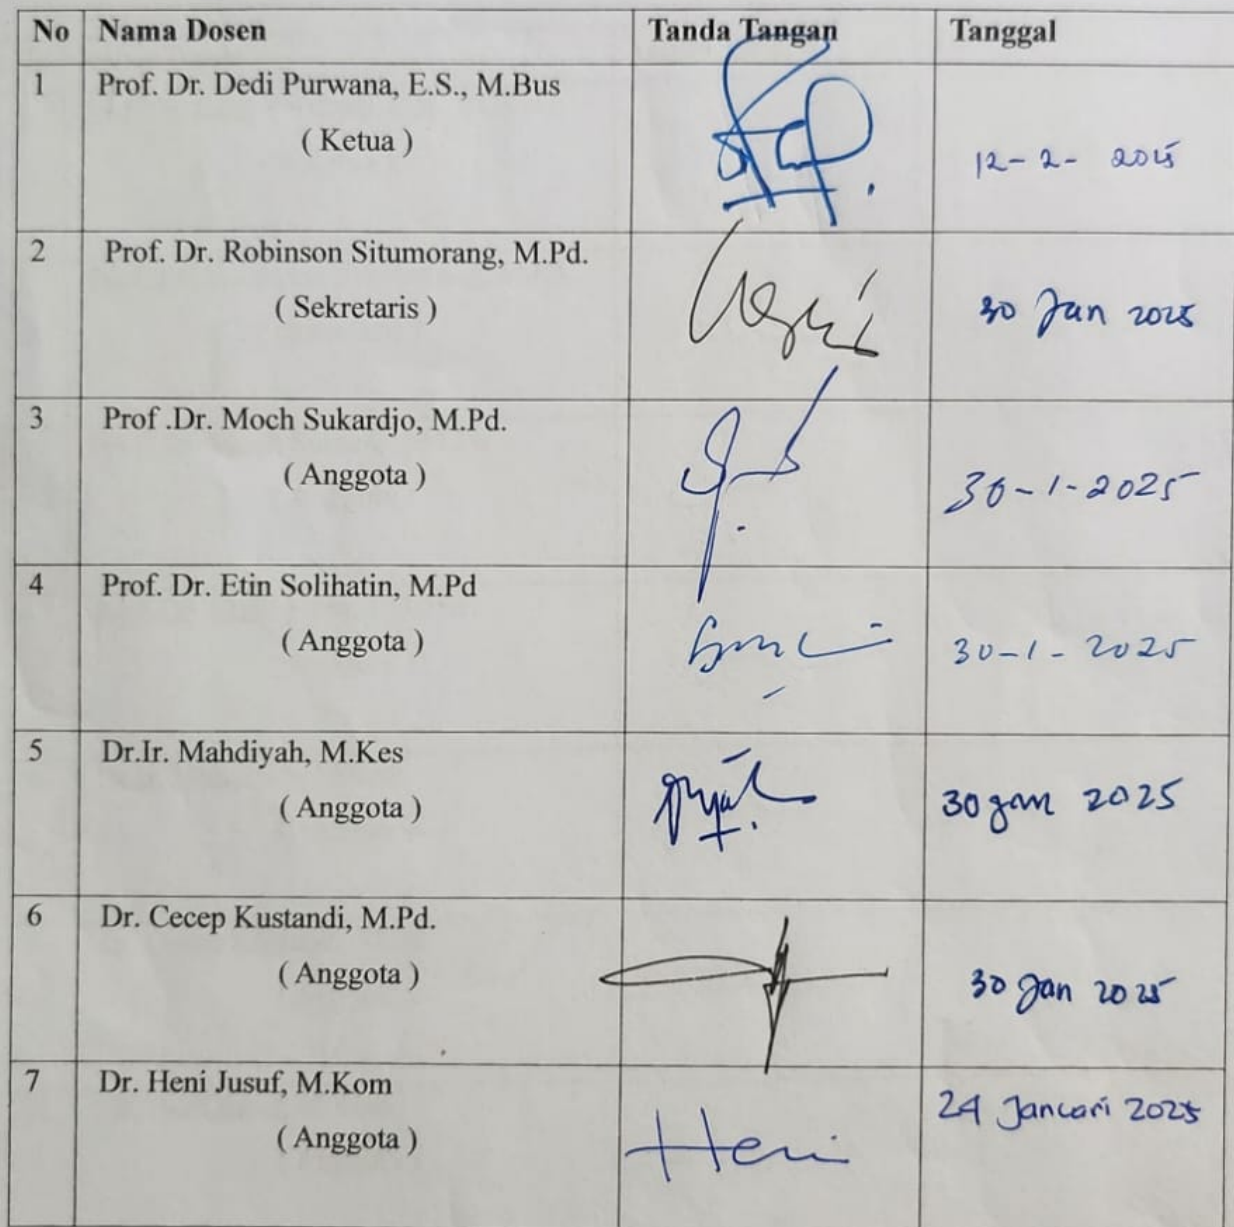 No Nama Dosen Tanda Tangan Tanggal
1 Prof. Dr. Dedi Purwana, E.S., M.Bus
( Ketua ) 12-2- 2025
2 Prof. Dr. Robinson Situmorang, M.Pd.
( Sekretaris ) 30 Jan 2025
3 Prof .Dr. Moch Sukardjo, M.Pd.
( Anggota ) 30-1-2025
4 Prof. Dr. Etin Solihatin, M.Pd
( Anggota ) 30-1-2025
5 Dr.Ir. Mahdiyah, M.Kes
( Anggota ) 30 Jan 2025
6 Dr. Cecep Kustandi, M.Pd.
( Anggota ) 30 Jan 2025
7 Dr. Heni Jusuf, M.Kom 24 Januari 2025
( Anggota ) Heni